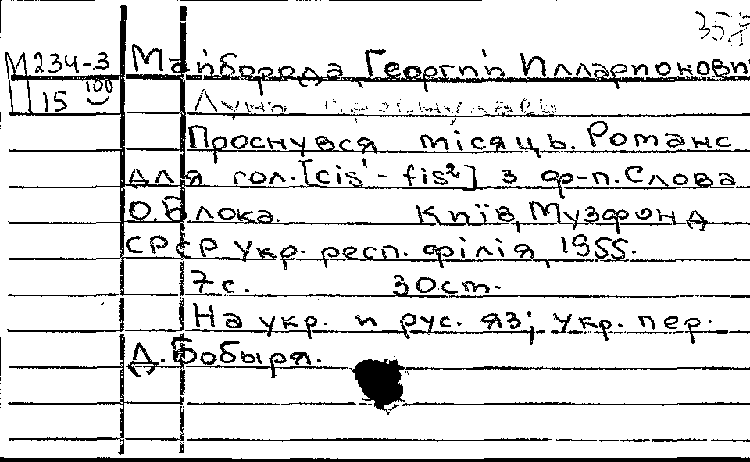 М234-3 Майборода, Георгий Илларионович
15 100
Луна проснулась
Проснувся місяць. Романс
для гол. [cis¹ - fis²] з ф-п. Слова
О. Блока. Київ, Музфонд
СРСР Укр. респ. філія, 1955.
7 с. 30 cm.
На укр. и рус. яз; укр. пер.
Д. Бобыря.